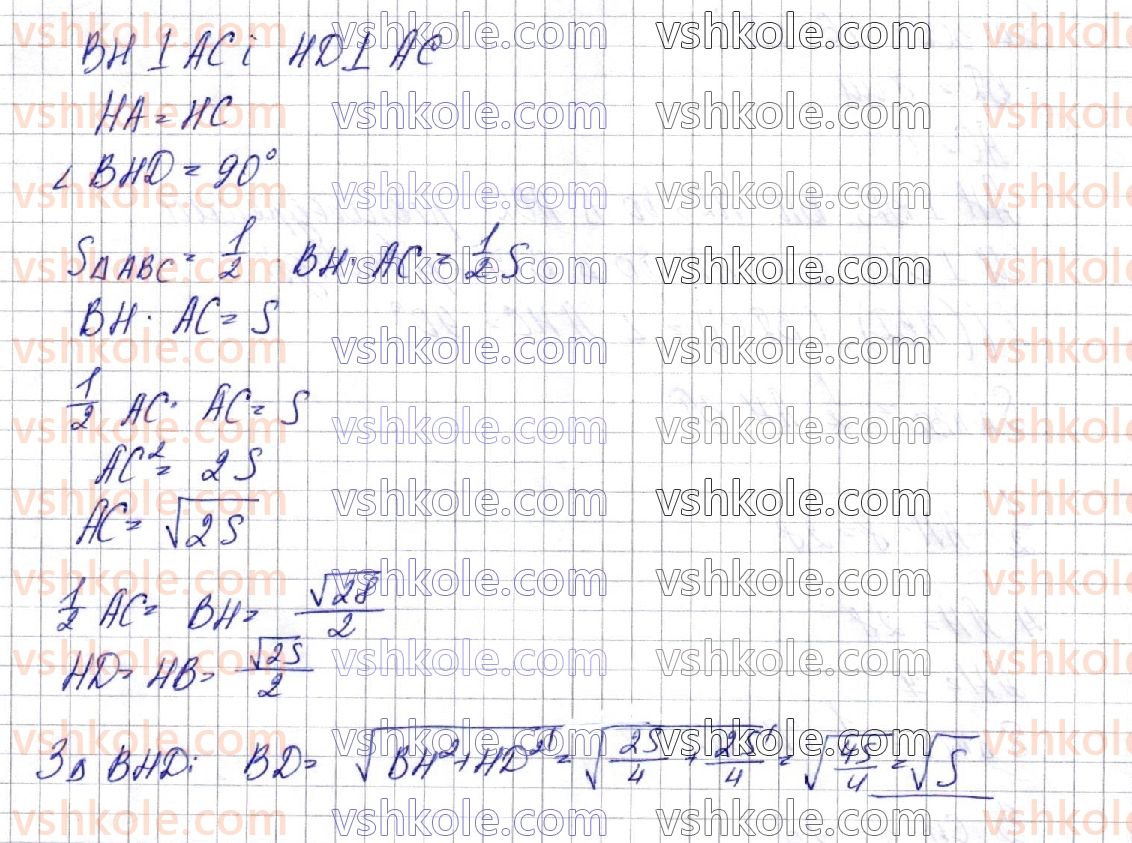 BH ⊥ AC і HD ⊥ AC
HA = HC
∠ BHD = 90°
S△ABC = 1/2 · BH · AC = 1/2 S
BH · AC = S
1/2 AC · AC = S
AC² = 2S
AC = √2S
1/2 AC = BH = √2S/2
HD = HB = √2S/2
З △ BHD: BD = √BH² + HD² = √2S/4 + 2S/4 = √4S/4 = √S
vshkole.com